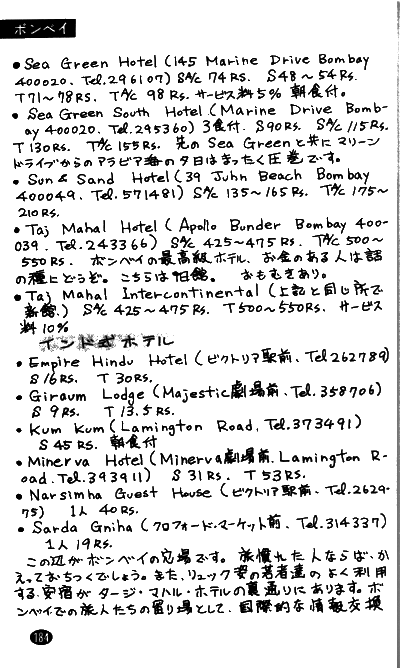 ボンベイ
• Sea Green Hotel (145 Marine Drive Bombay
400020. Tel.296107) S%c 74Rs. S48〜54Rs.
T71〜78Rs. T%c 98Rs. サービス料5% 朝食付。
• Sea Green South Hotel (Marine Drive Bomb-
ay 400020, Tel.295360) 3食付. S90Rs. S%c 115Rs.
T130Rs. T%c 155Rs. 先のSea Greenと共にマリーン
ドライブからのアラビア海の夕日はまったく圧巻です。
• Sun & Sand Hotel (39 Juhn Beach Bombay
400049. Tel.571481) S%c 135〜165Rs. T%c 175〜
210Rs.
• Taj Mahal Hotel (Apollo Bunder Bombay 400-
039. Tel.243366) S%c 425〜475Rs. T%c 500〜
550Rs. ボンベイの最高級ホテル. お金のある人は話
の種にどうぞ。こちらは旧館。 おもむきあり。
• Taj Mahal Intercontinental (上記と同じ所で
新館.) S%c 425〜475Rs. T500〜550Rs. サービス
料10%
インド式ホテル
• Empire Hindu Hotel (ビクトリア駅前、Tel262789)
S16Rs. T30Rs.
• Giraum Lodge (Majestic劇場前、Tel.358706)
S9Rs. T13.5Rs.
• Kum Kum (Lamington Road, Tel.373491)
S45Rs. 朝食付
• Minerva Hotel (Minerva劇場前. Lamington R-
oad. Tel.393911) S31Rs. T53Rs.
• Narsimha Guest House (ビクトリア駅前、Tel.2629-
75) 1人 40Rs.
• Sarda Gniha (クロフォード・マーケット前、Tel.314337)
1人19Rs.
この辺がボンベイの穴場です。旅慣れた人ならば、か
えっておちつくでしょう。また、リュック姿の若者達のよく利用
する安宿がタージ・マハル・ホテルの裏通りにあります。ボ
ンベイでの旅人たちの留り場として、国際的な情報交換
184